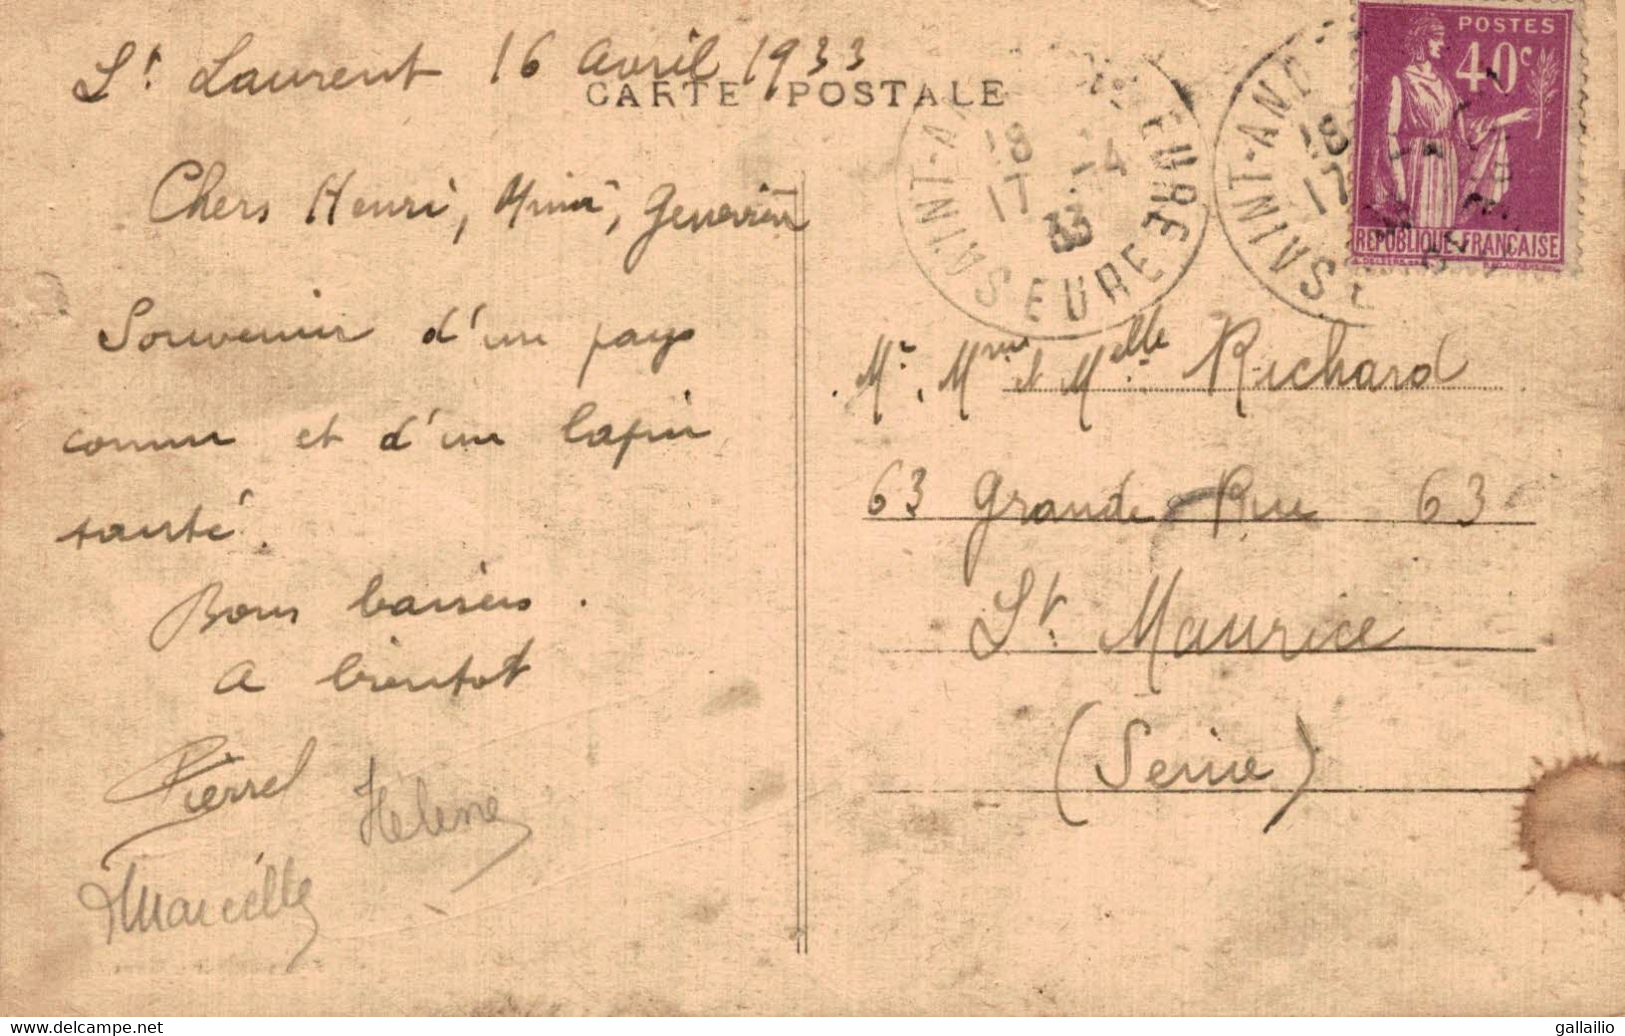 St Laurent 16 avril 1933
CARTE POSTALE
Chers Henri, Mimi, Geneviève
Souvenir d'un pays
connu et d'un lapin
sauté.
Bons baisers.
A bientot
Pierrel
Hélène
Marcelle
SAINT-AND EURE EURE
18
17 -4
33
SAINT-AND
18
17
POSTES
40c
REPUBLIQUE FRANÇAISE
Mr, Mme et Melle Richard
63 Grande Rue 63
St Maurice
(Seine)
gallailio